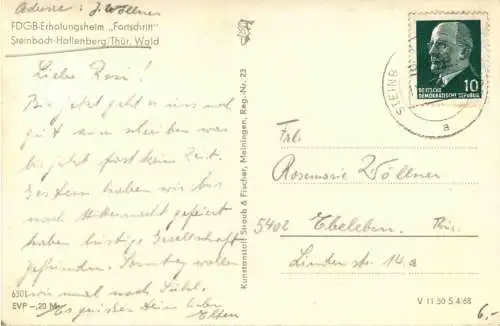 Adresse: J. Wöllner
FDGB-Erholungsheim „Fortschritt"
Steinbach-Hallenberg/Thür. Wald
Liebe Rosi!
Bis jetzt geht es uns noch
gut zum schreiben war
bis jetzt fast keine Zeit.
Gestern haben wir bis
nach Mitternacht gefeiert
haben lustige Gesellschaft
gefunden. Sonntag wollen
wir mal nach Suhl.
Es grüßen Deine lieben
Eltern
6301
EVP -,20 M
Kunstanstalt Straub & Fischer, Meiningen, Reg.-Nr. 23
STEINB
a
DEUTSCHE
DEMOKRATISCHE REPUBLIK
10
Frl.
Rosemarie Wöllner
5402 Ebeleben. Thür.
Lindenstr. 14a
V 11 50 S 4/68
6.-